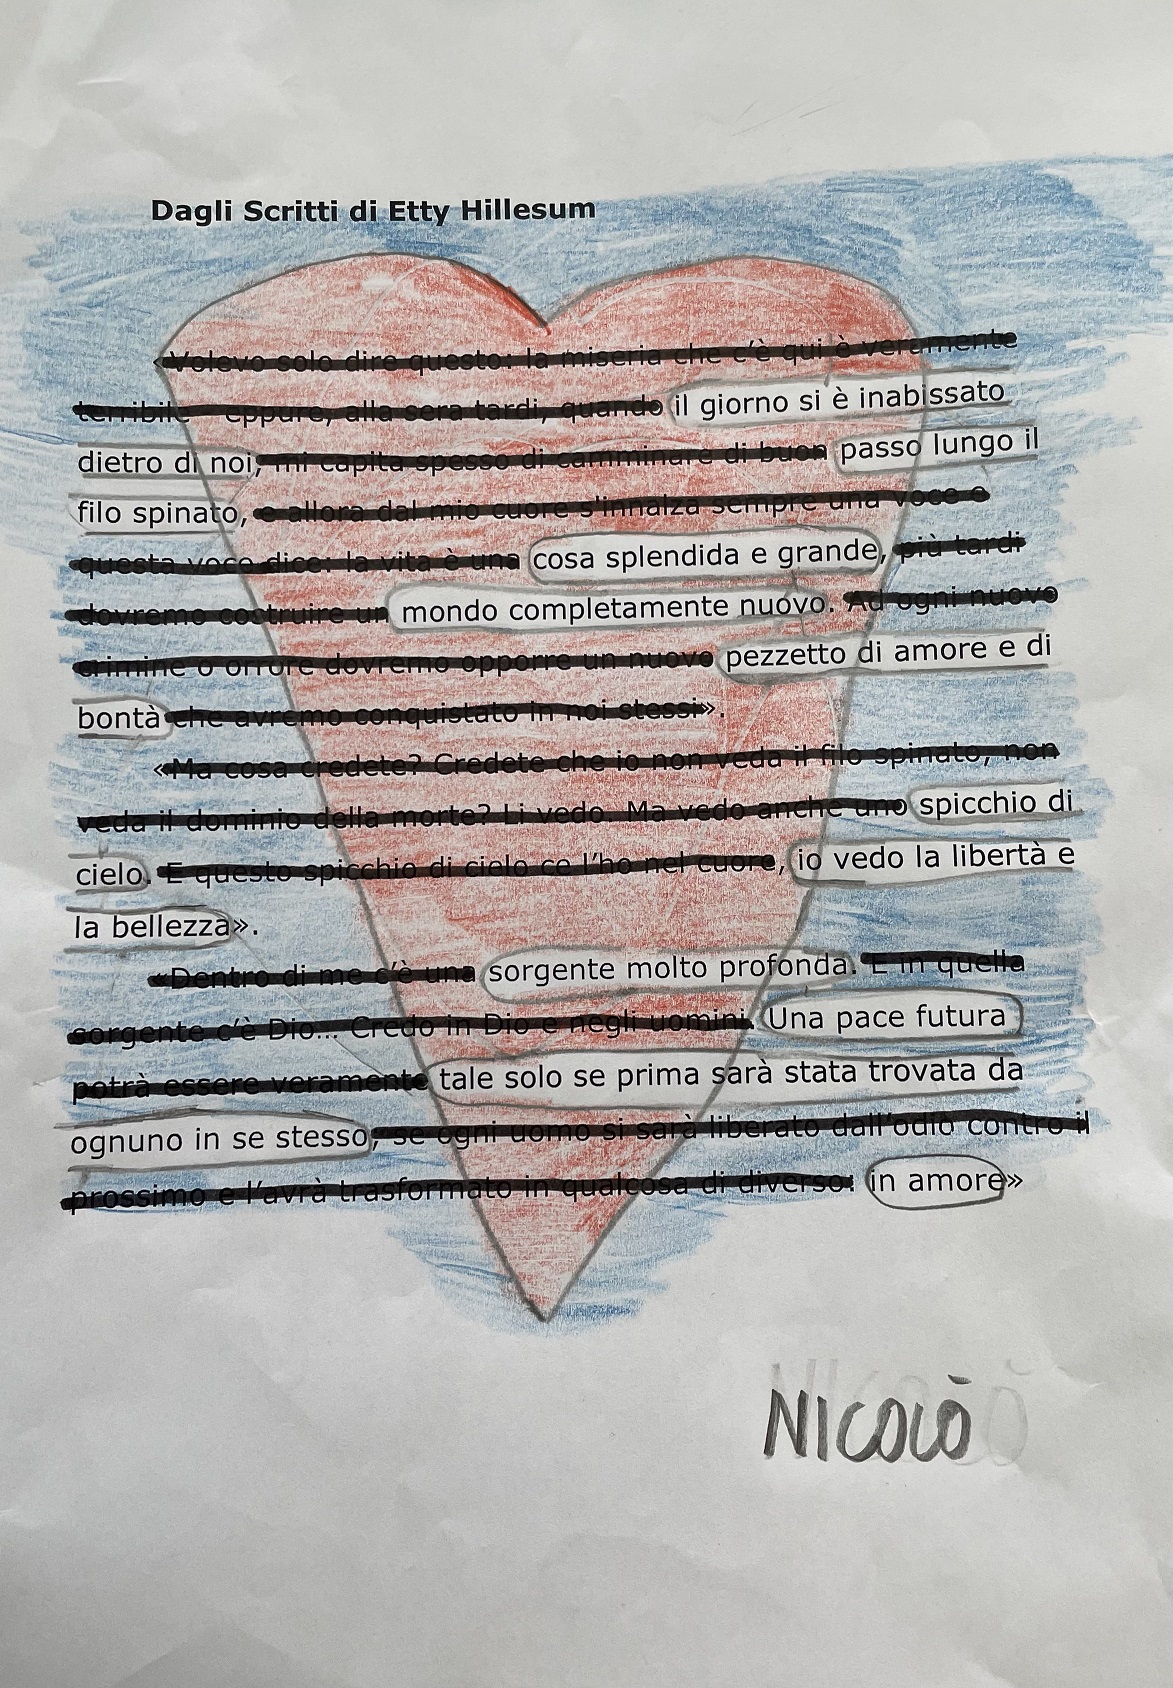 Dagli Scritti di Etty Hillesum
«Volevo solo dire questo: la miseria che c'è qui è veramente
terribile eppure, alla sera tardi, quando il giorno si è inabissato
dietro di noi, mi capita spesso di camminare di buon passo lungo il
filo spinato, e allora dal mio cuore s'innalza sempre una voce e
questa voce dice: la vita è una cosa splendida e grande, più tardi
dovremo costruire un mondo completamente nuovo. Ad ogni nuovo
crimine o orrore dovremo opporre un nuovo pezzetto di amore e di
bontà che avremo conquistato in noi stessi».
«Ma cosa credete? Credete che io non veda il filo spinato, non
veda il dominio della morte? Li vedo. Ma vedo anche uno spicchio di
cielo. E questo spicchio di cielo ce l'ho nel cuore, io vedo la libertà e
la bellezza».
«Dentro di me c'è una sorgente molto profonda. E in quella
sorgente c'è Dio... Credo in Dio e negli uomini. Una pace futura
potrà essere veramente tale solo se prima sarà stata trovata da
ognuno in se stesso, se ogni uomo si sarà liberato dall'odio contro il
prossimo e l'avrà trasformato in qualcosa di diverso: in amore»
NICOLÒ